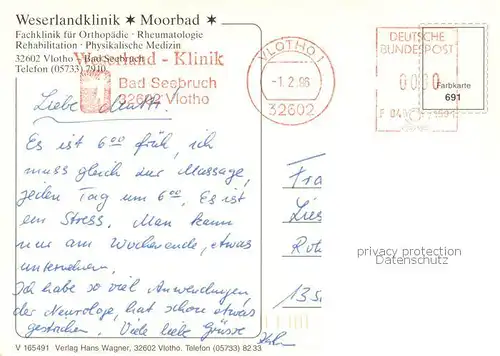 Weserlandklinik ✶ Moorbad ✶
Fachklinik für Orthopädie · Rheumatologie
Rehabilitation · Physikalische Medizin
32602 Vlotho · Bad Seebruch
Telefon (05733) 7910
Weserland - Klinik
Bad Seebruch
32602 Vlotho
VLOTHO 1
-1.2.96
32602
DEUTSCHE
BUNDESPOST
Farbkarte
691
Liebe
Es ist 6⁰⁰ früh, ich
muss gleich zur Massage,
jeden Tag um 6⁰⁰. Es ist
ein Stress. Man kann
nur am Wochenende, etwas
unternehmen.
Ich habe so viel Anwendungen,
der Neurologe, hat schon etwas
gestochen. Viele liebe Grüsse
Fra
Lies
Rot
privacy protection
Datenschutz
V 165491 Verlag Hans Wagner, 32602 Vlotho, Telefon (05733) 82 33